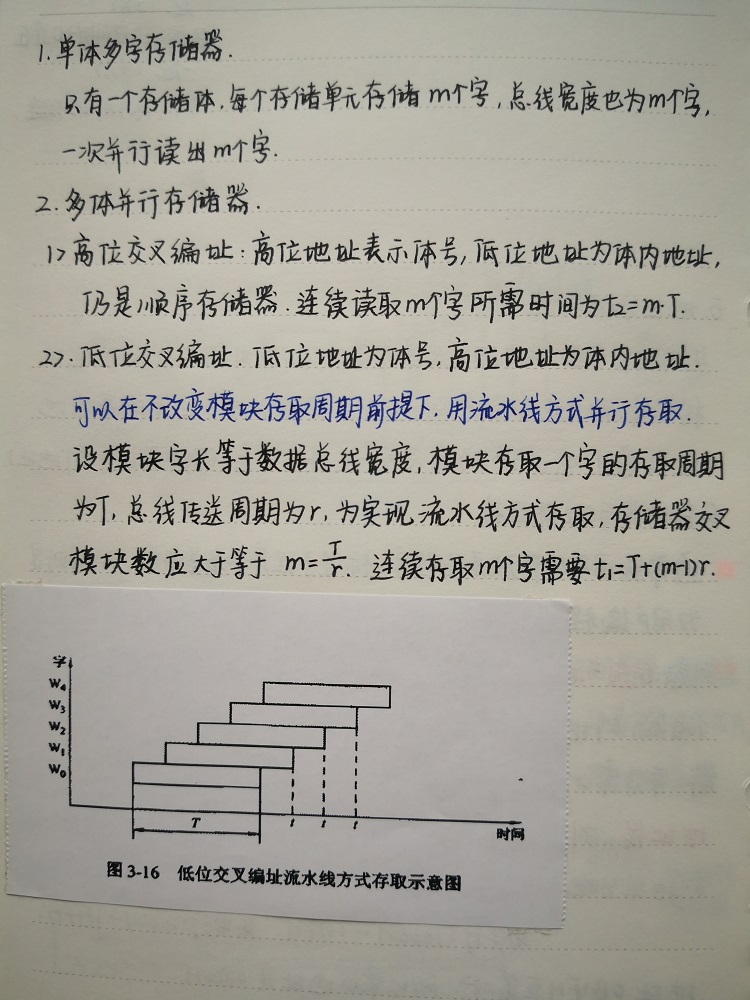 1.单体多字存储器.
只有一个存储体.每个存储单元存储m个字,总线宽度也为m个字,
一次并行读出m个字.
2.多体并行存储器.
1>高位交叉编址:高位地址表示体号,低位地址为体内地址,
仍是顺序存储器.连续读取m个字所需时间为t₂=m·T.
2>.低位交叉编址.低位地址为体号,高位地址为体内地址.
可以在不改变模块存取周期前提下,用流水线方式并行存取.
设模块字长等于数据总线宽度,模块存取一个字的存取周期
为T,总线传送周期为r,为实现流水线方式存取,存储器交叉
模块数应大于等于 m=T/r. 连续存取m个字需要t₁=T+(m-1)r.
字
W₄
W₃
W₂
W₁
W₀
T t t t
时间
图 3-16 低位交叉编址流水线方式存取示意图